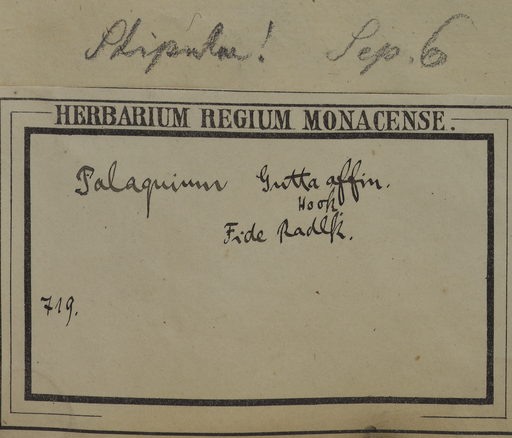 Stipulae! Sep. 6
HERBARIUM REGIUM MONACENSE.
Palaquium Gutta affin.
Hook
Fide Radlk.
719.